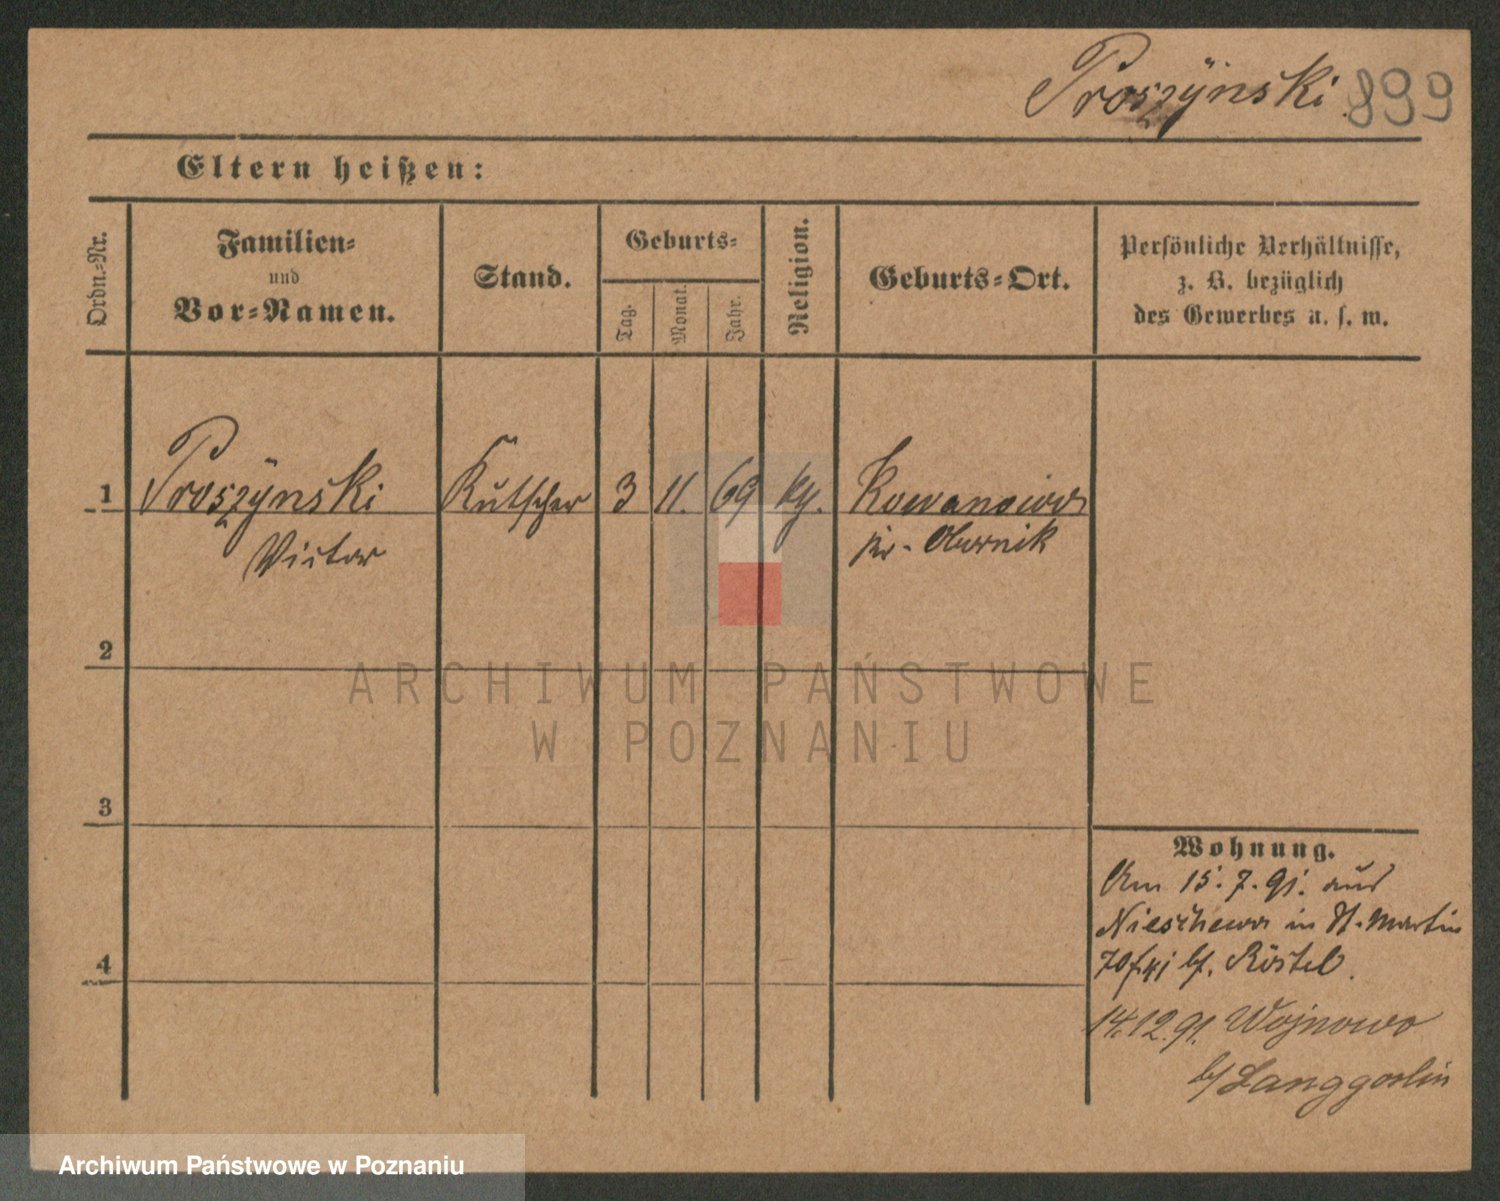 Proszÿnski 899
Eltern heißen:
Ordn.-Nr.
Familien-
und
Vor-Namen.
Stand.
Geburts-
Tag.
Monat.
Jahr.
Religion.
Geburts-Ort.
Persönliche Verhältnisse,
z. B. bezüglich
des Gewerbes u. s. w.
1 Proszÿnski Kutscher 3 11. 69 kth. Kowanowo
Victor Kr. Obornik
2
3
4
Wohnung.
Am 15.7.91. aus
in St. Martin
70 bf. Röstel.
14.12.91. Wojnowo
bf Langgoslin
ARCHIWUM PAŃSTWOWE
W POZNANIU
Archiwum Państwowe w Poznaniu